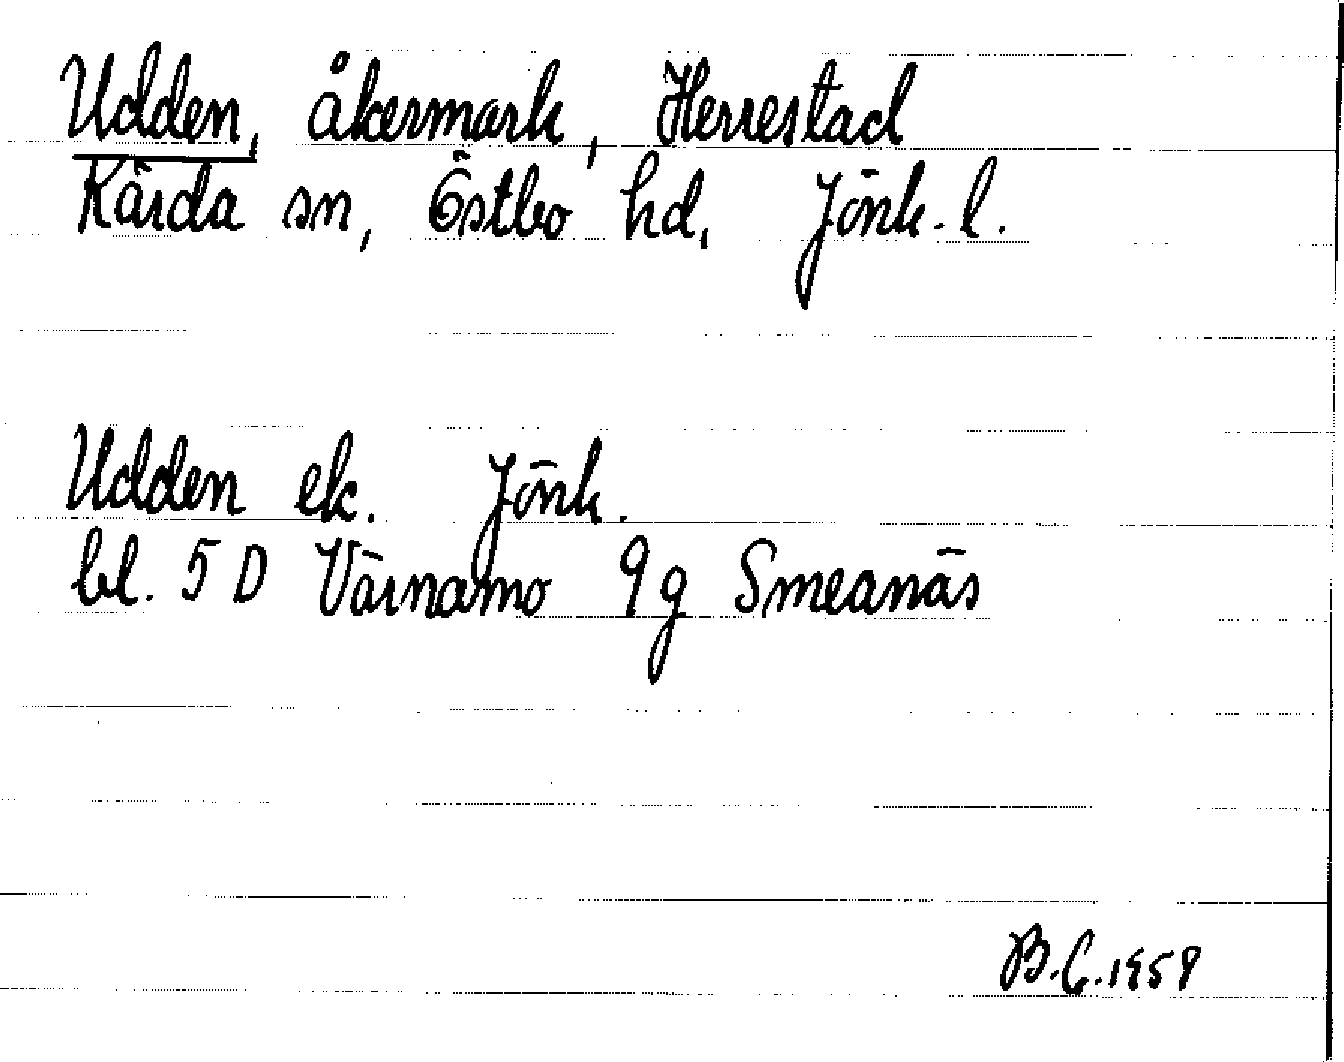 Udden, åkermark, Herrestad
Kärda sn, Östbo hd, Jönk. l.
Udden ek. Jönk.
bl. 5 D Värnamo 9g Smeanäs